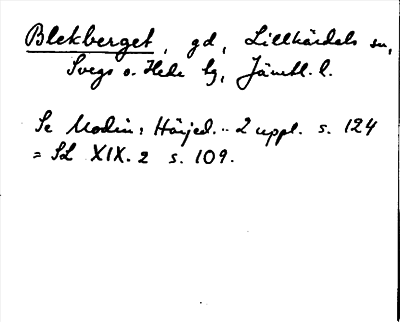 Blekberget, gd, Lillhärdals sn,
Svegs o. Hede tg, Jämtl. l.
Se Modin, Härjed. .. 2 uppl. s. 124
= SL XIX. 2 s. 109.